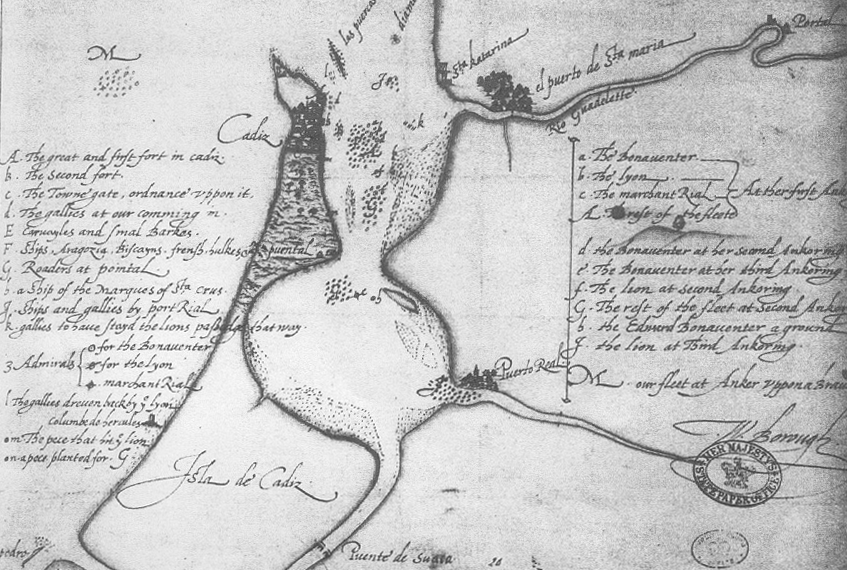 las puercas
M
Sta katarina
el puerto de Sta maria
Portal
Rio Guadelette
Cadiz
A. The great and first fort in cadiz.
b. The Second fort.
c. The Towne gate, ordnance vppon it.
d. The gallies at our comming in.
E and smal Barkes.
F. Ships, Aragozia, Biscayns, frensh, hulkes
G. Roaders at pointal
h. a Ship of the Marques of Sta Crus.
J. Ships and gallies by port Rial
k. gallies to have stayd the lions passage that way.
3 Admirals
for the Bonaventer
for the lyon
marchant Rial
l The gallies dreven back by ye lyon
columbe de hercules
m The pece that hit ye lion
n a pece planted for G
puental
a. The Bonaventer
b. The lyon
c. The marchant Rial
At her first Ank
A. rest of the fleete
d. the Bonaventer at her second Ankoring
e. The Bonaventer at her third Ankoring
f. The lion at second Ankoring
G. The rest of the fleet at Second Ankor
h. the Edward Bonaventer a ground
J. the lion at Third Ankoring.
M. our fleet at Anker vppon a Brav
Puerto Real
W Borough
HER MAJESTY'S STATE PAPER OFFICE
Isla de Cadiz
Puente de Suaca
20